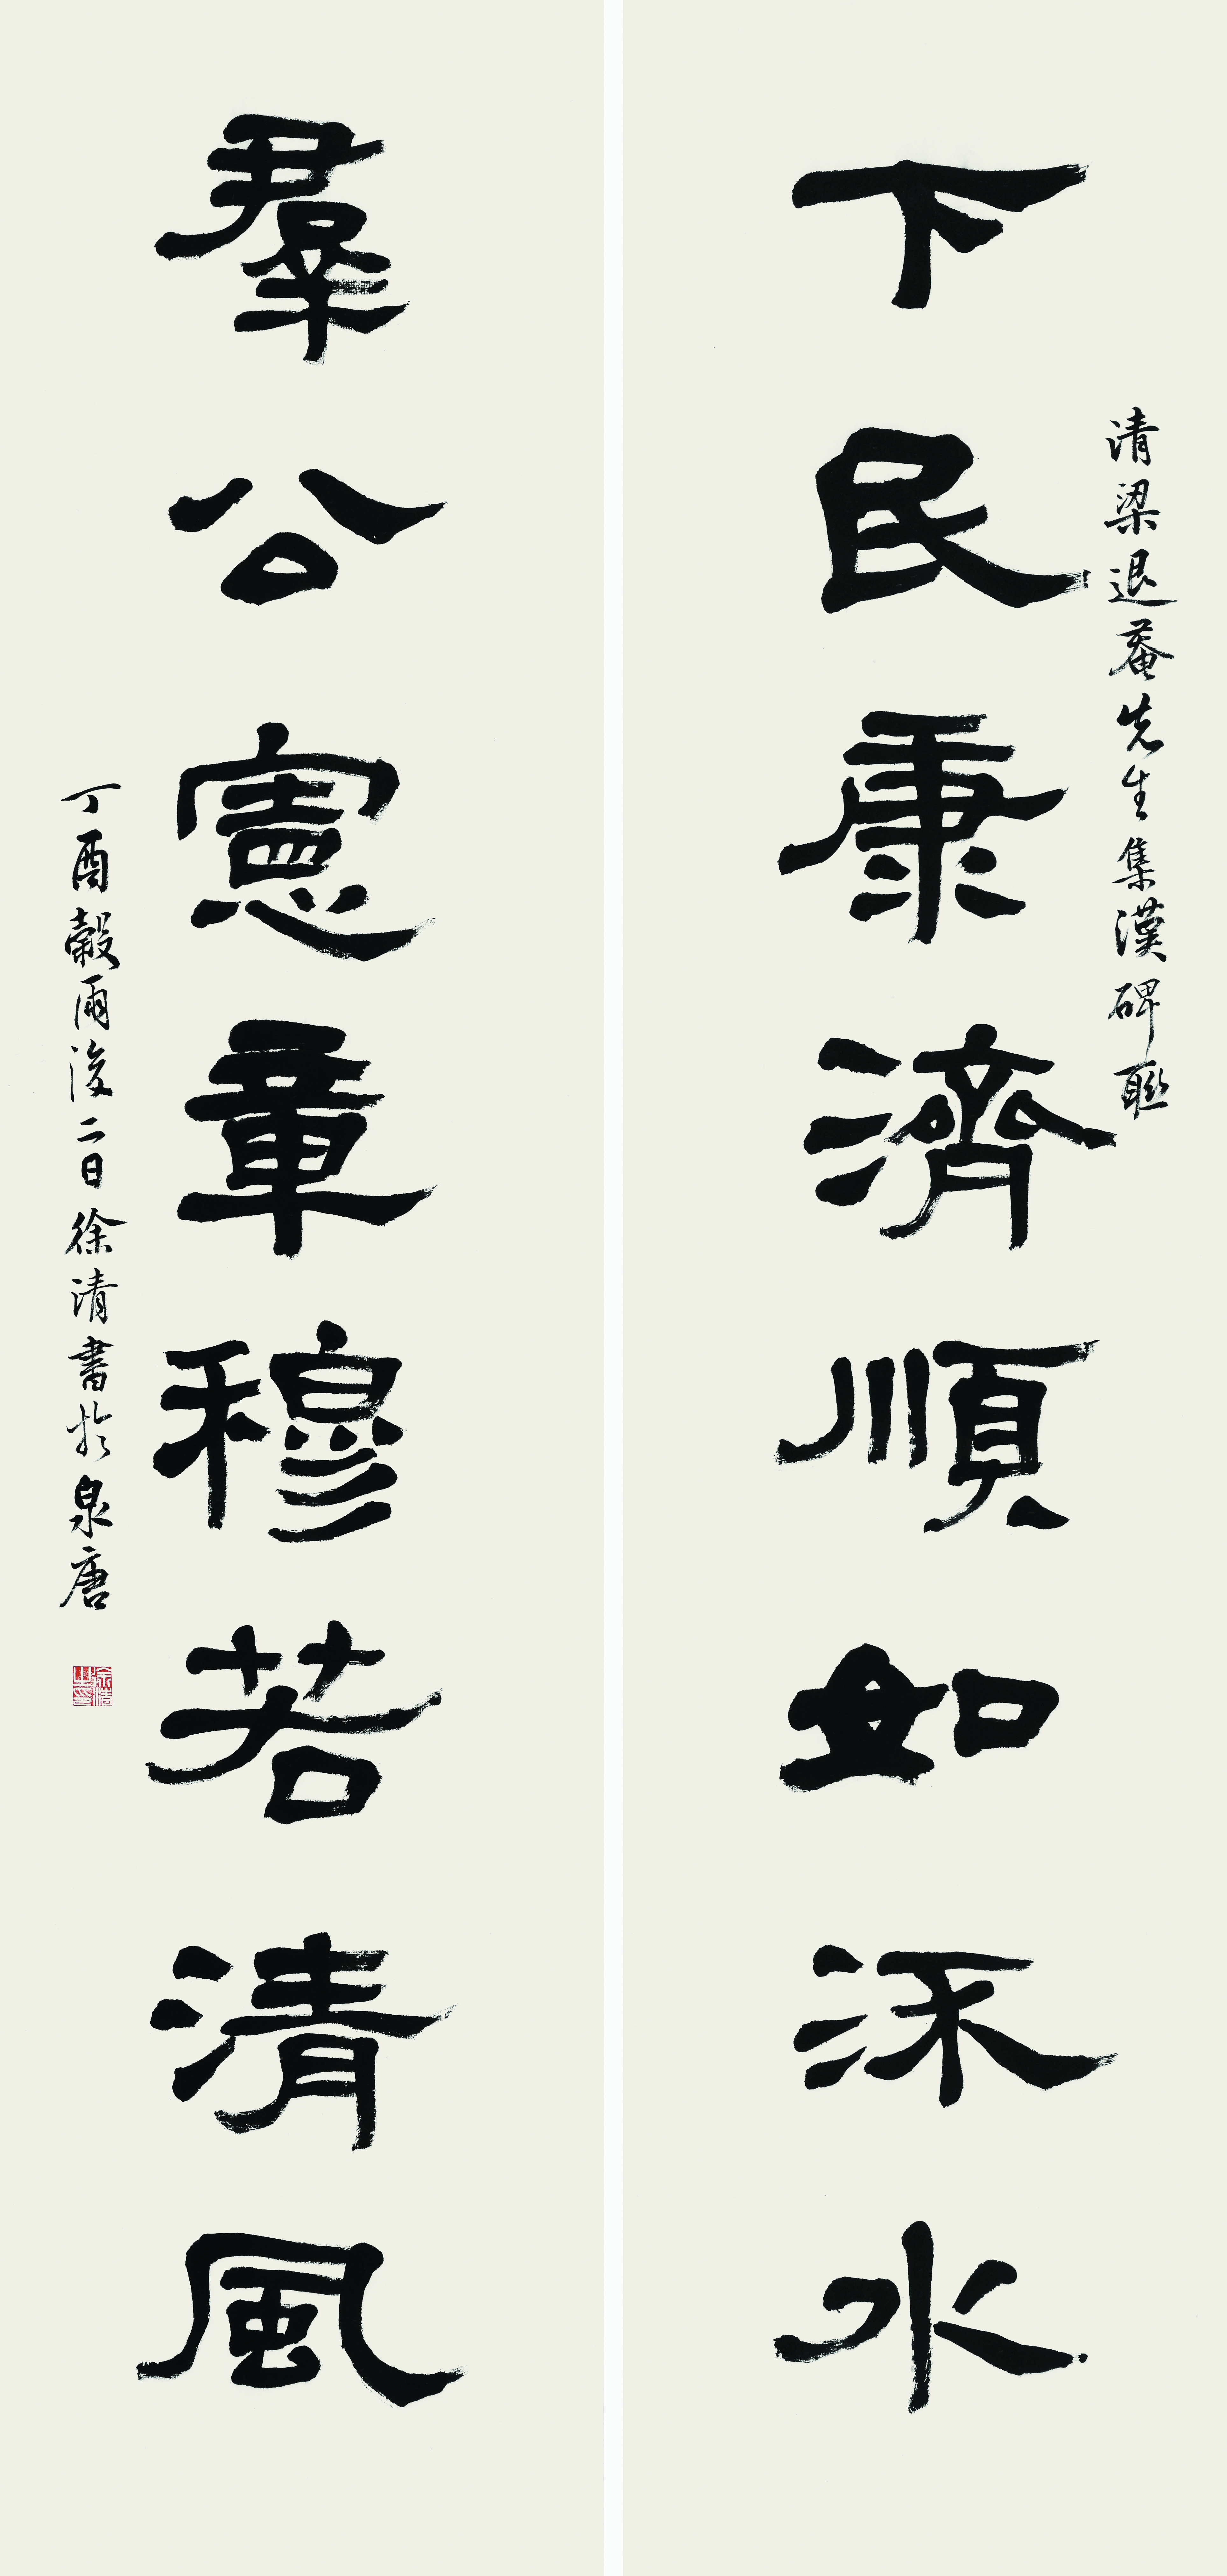 下民康濟順如㳅水
清梁退菴先生集漢碑聯
羣公憲章穆若清風
丁酉穀雨後二日徐清書於泉唐